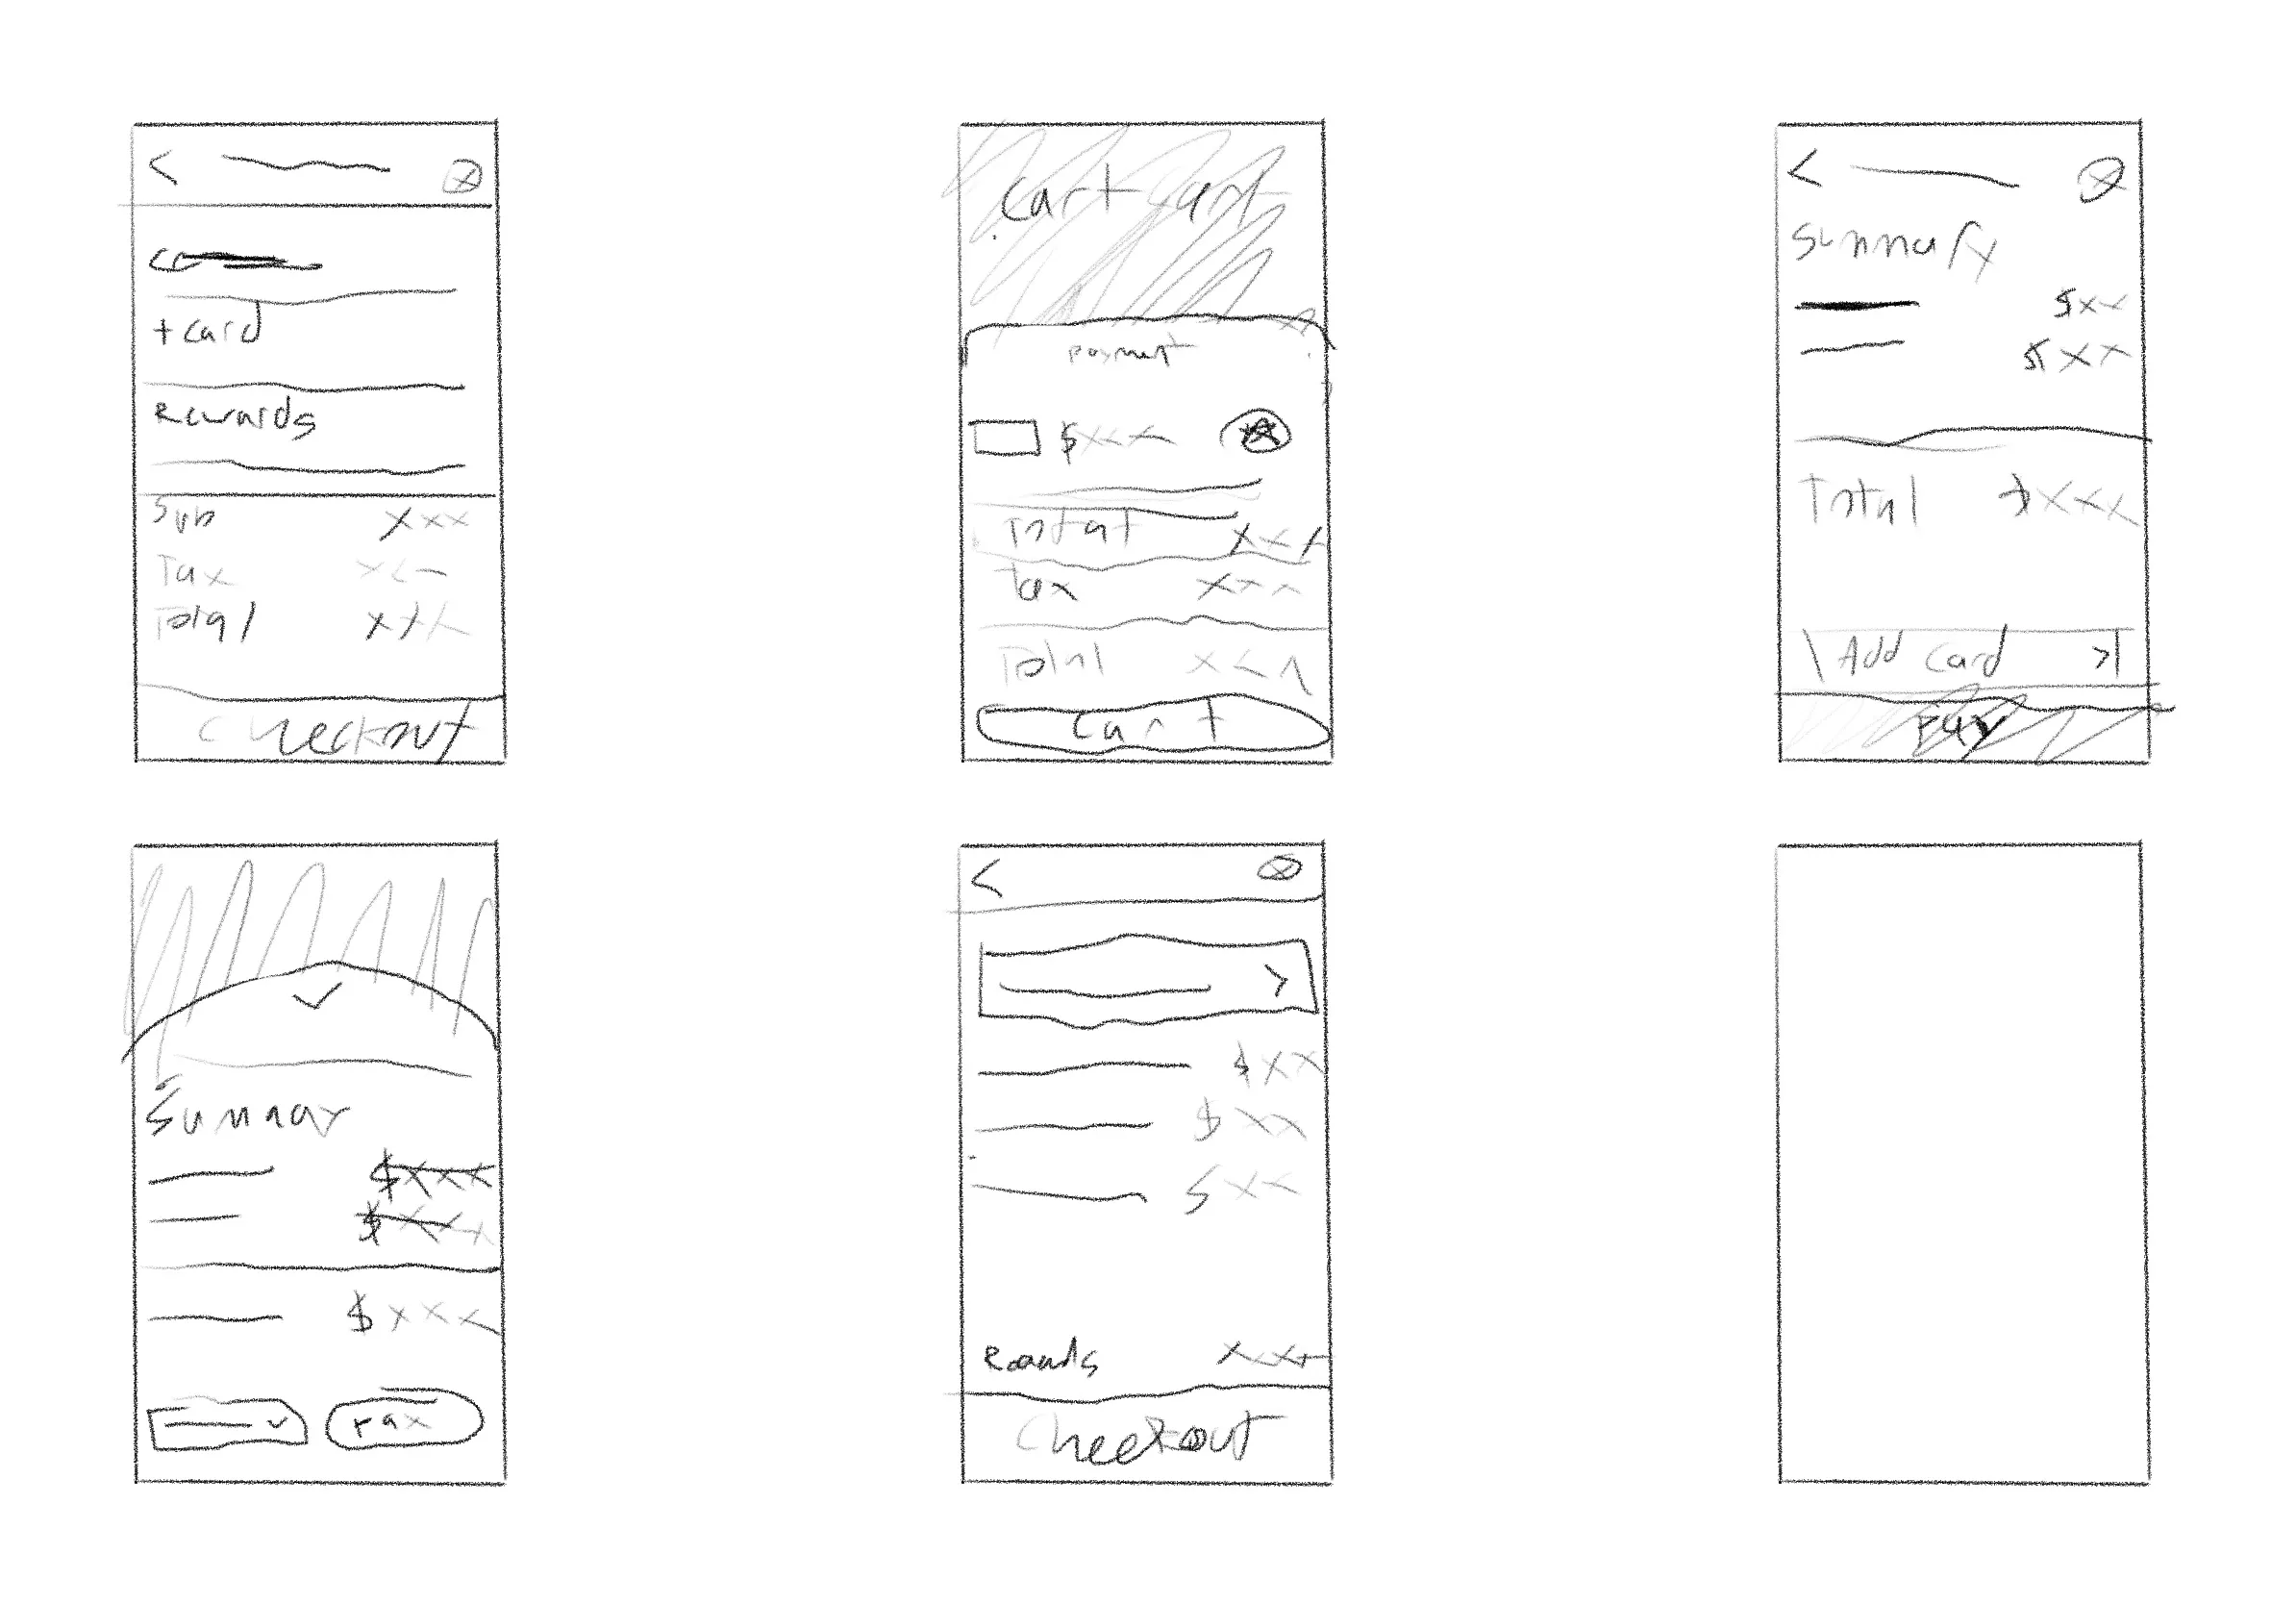 + card
Rewards
Sub xxx
Tax xxx
Total xxx
Checkout
Cart Cart
payment
$xxx
Total xxx
tax xxx
Total xxx
Cart
Summary
$xx
$xx
Total $xxx
Add Card >
Pay
Summary
$xxx
$xxx
$xxx
Pay
>
$xx
$xx
$xx
xxx
Checkout